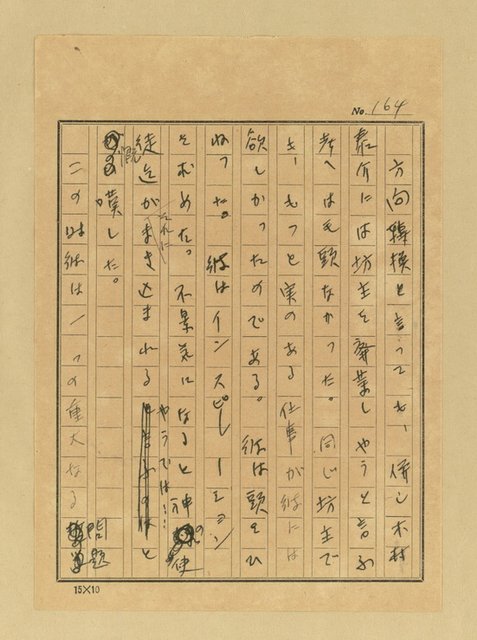 No. 164
方向轉換と言つても、併し木村
泰介には坊主を廃業しやうと言ふ
考へは毛頭なかつた。同じ坊主で
も、もつと実のある仕事が彼には
欲しかつたのである。彼は頭をひ
ねつた。彼はインスピレーション
を求めたつ 不景気になると神の使
徒迄がそれにまき込まれるやうでは…と
慨嘆した。
この時彼は一つの重大なる問題
15×10